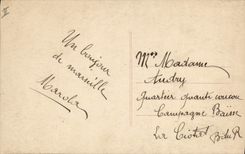 Un bonjour
de marseille
Marola
Mr Madame
Audry
Quartier quante coucou
Campagne Baisse
La Ciotat B du R